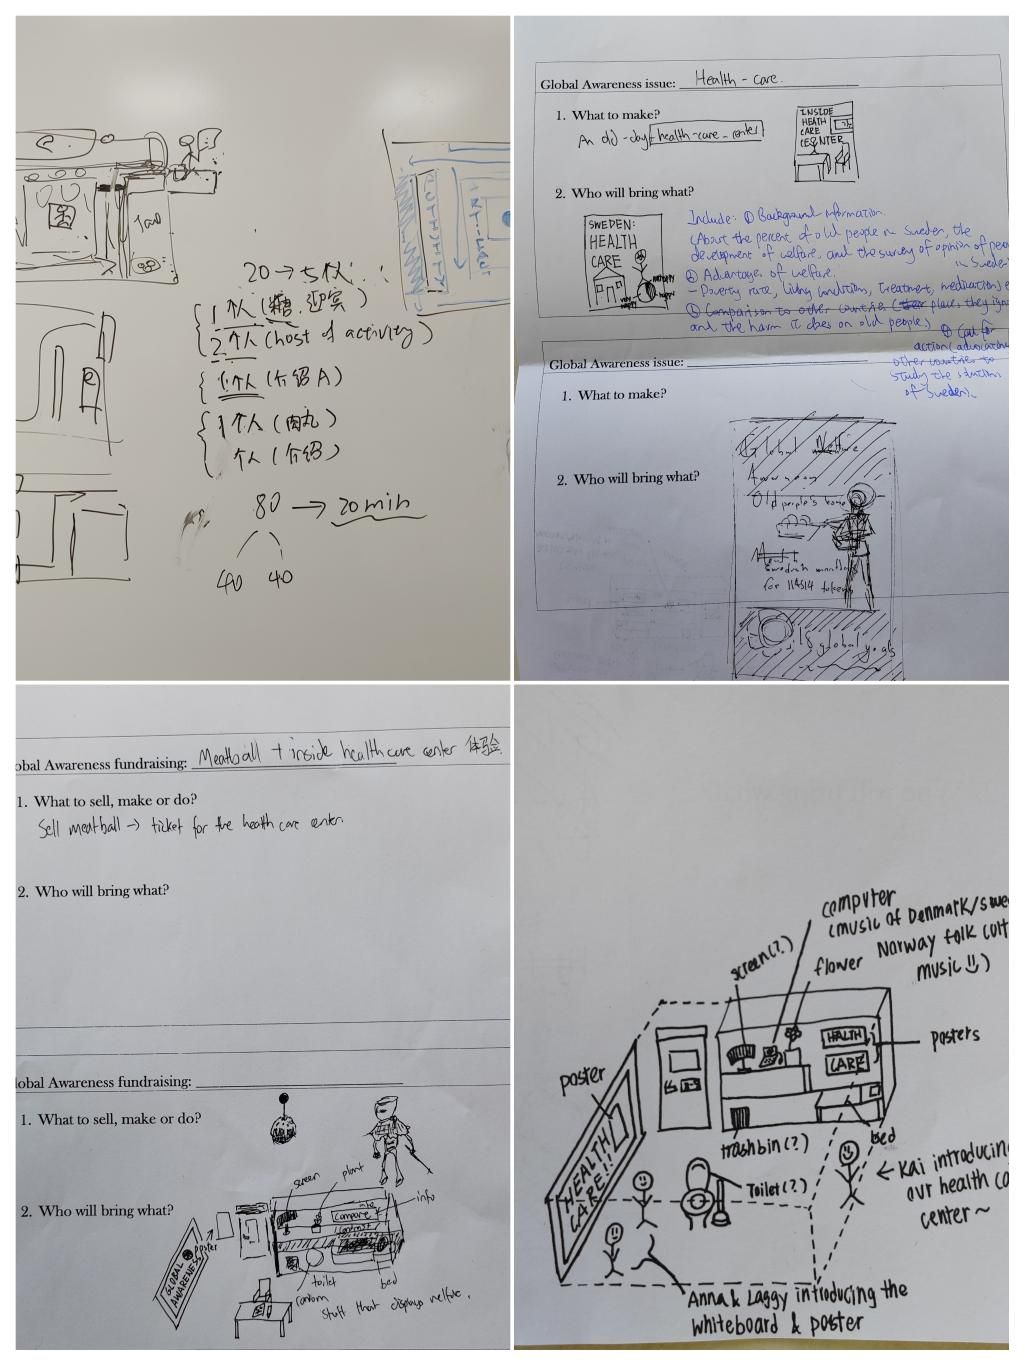 200
20 → 5个人
1个人(糖,迎宾)
2个人(host of activity)
1个人(介绍A)
1个人(肉丸)
个人(介绍)
80 → 20 min
40 40
Global Awareness issue: Health-care.
1. What to make?
An old-day health-care-center
INSIDE
HEATH
CARE
CENTER
2. Who will bring what?
SWEDEN:
HEALTH
CARE
Include: ① Background information.
(About the percent of old people in Sweden, the
development of welfare, and the survey of opinion of peop
in Sweden
② Advantages of welfare:
- Poverty rate, living condition, treatment, medication) e
③ Comparison to other countries (other place, they ign
and the harm it does on old people)
④ Call for
action (advocating
other countries to
study the situation
of Sweden).
Global Awareness issue:
1. What to make?
2. Who will bring what?
Global
Old people's home
Swedish meatball
for 114514 tokens
global goals
obal Awareness fundraising: Meatball + inside health care center 体验
1. What to sell, make or do?
Sell meatball → ticket for the health care center.
2. Who will bring what?
lobal Awareness fundraising:
1. What to sell, make or do?
2. Who will bring what?
screen
plant
info
compare
poster
GLOBAL
AWARENESS
toilet
bed
random
stuff that displays welfare.
computer
(music of Denmark/swe
Norway folk cult
music)
screen(?)
flower
HEALTH
CARE
posters
poster
HEALTH
CARE!!!
trashbin(?)
bed
Toilet(?)
← Kai introducing
our health ca
center~
Anna & Laggy introducing the
whiteboard & poster